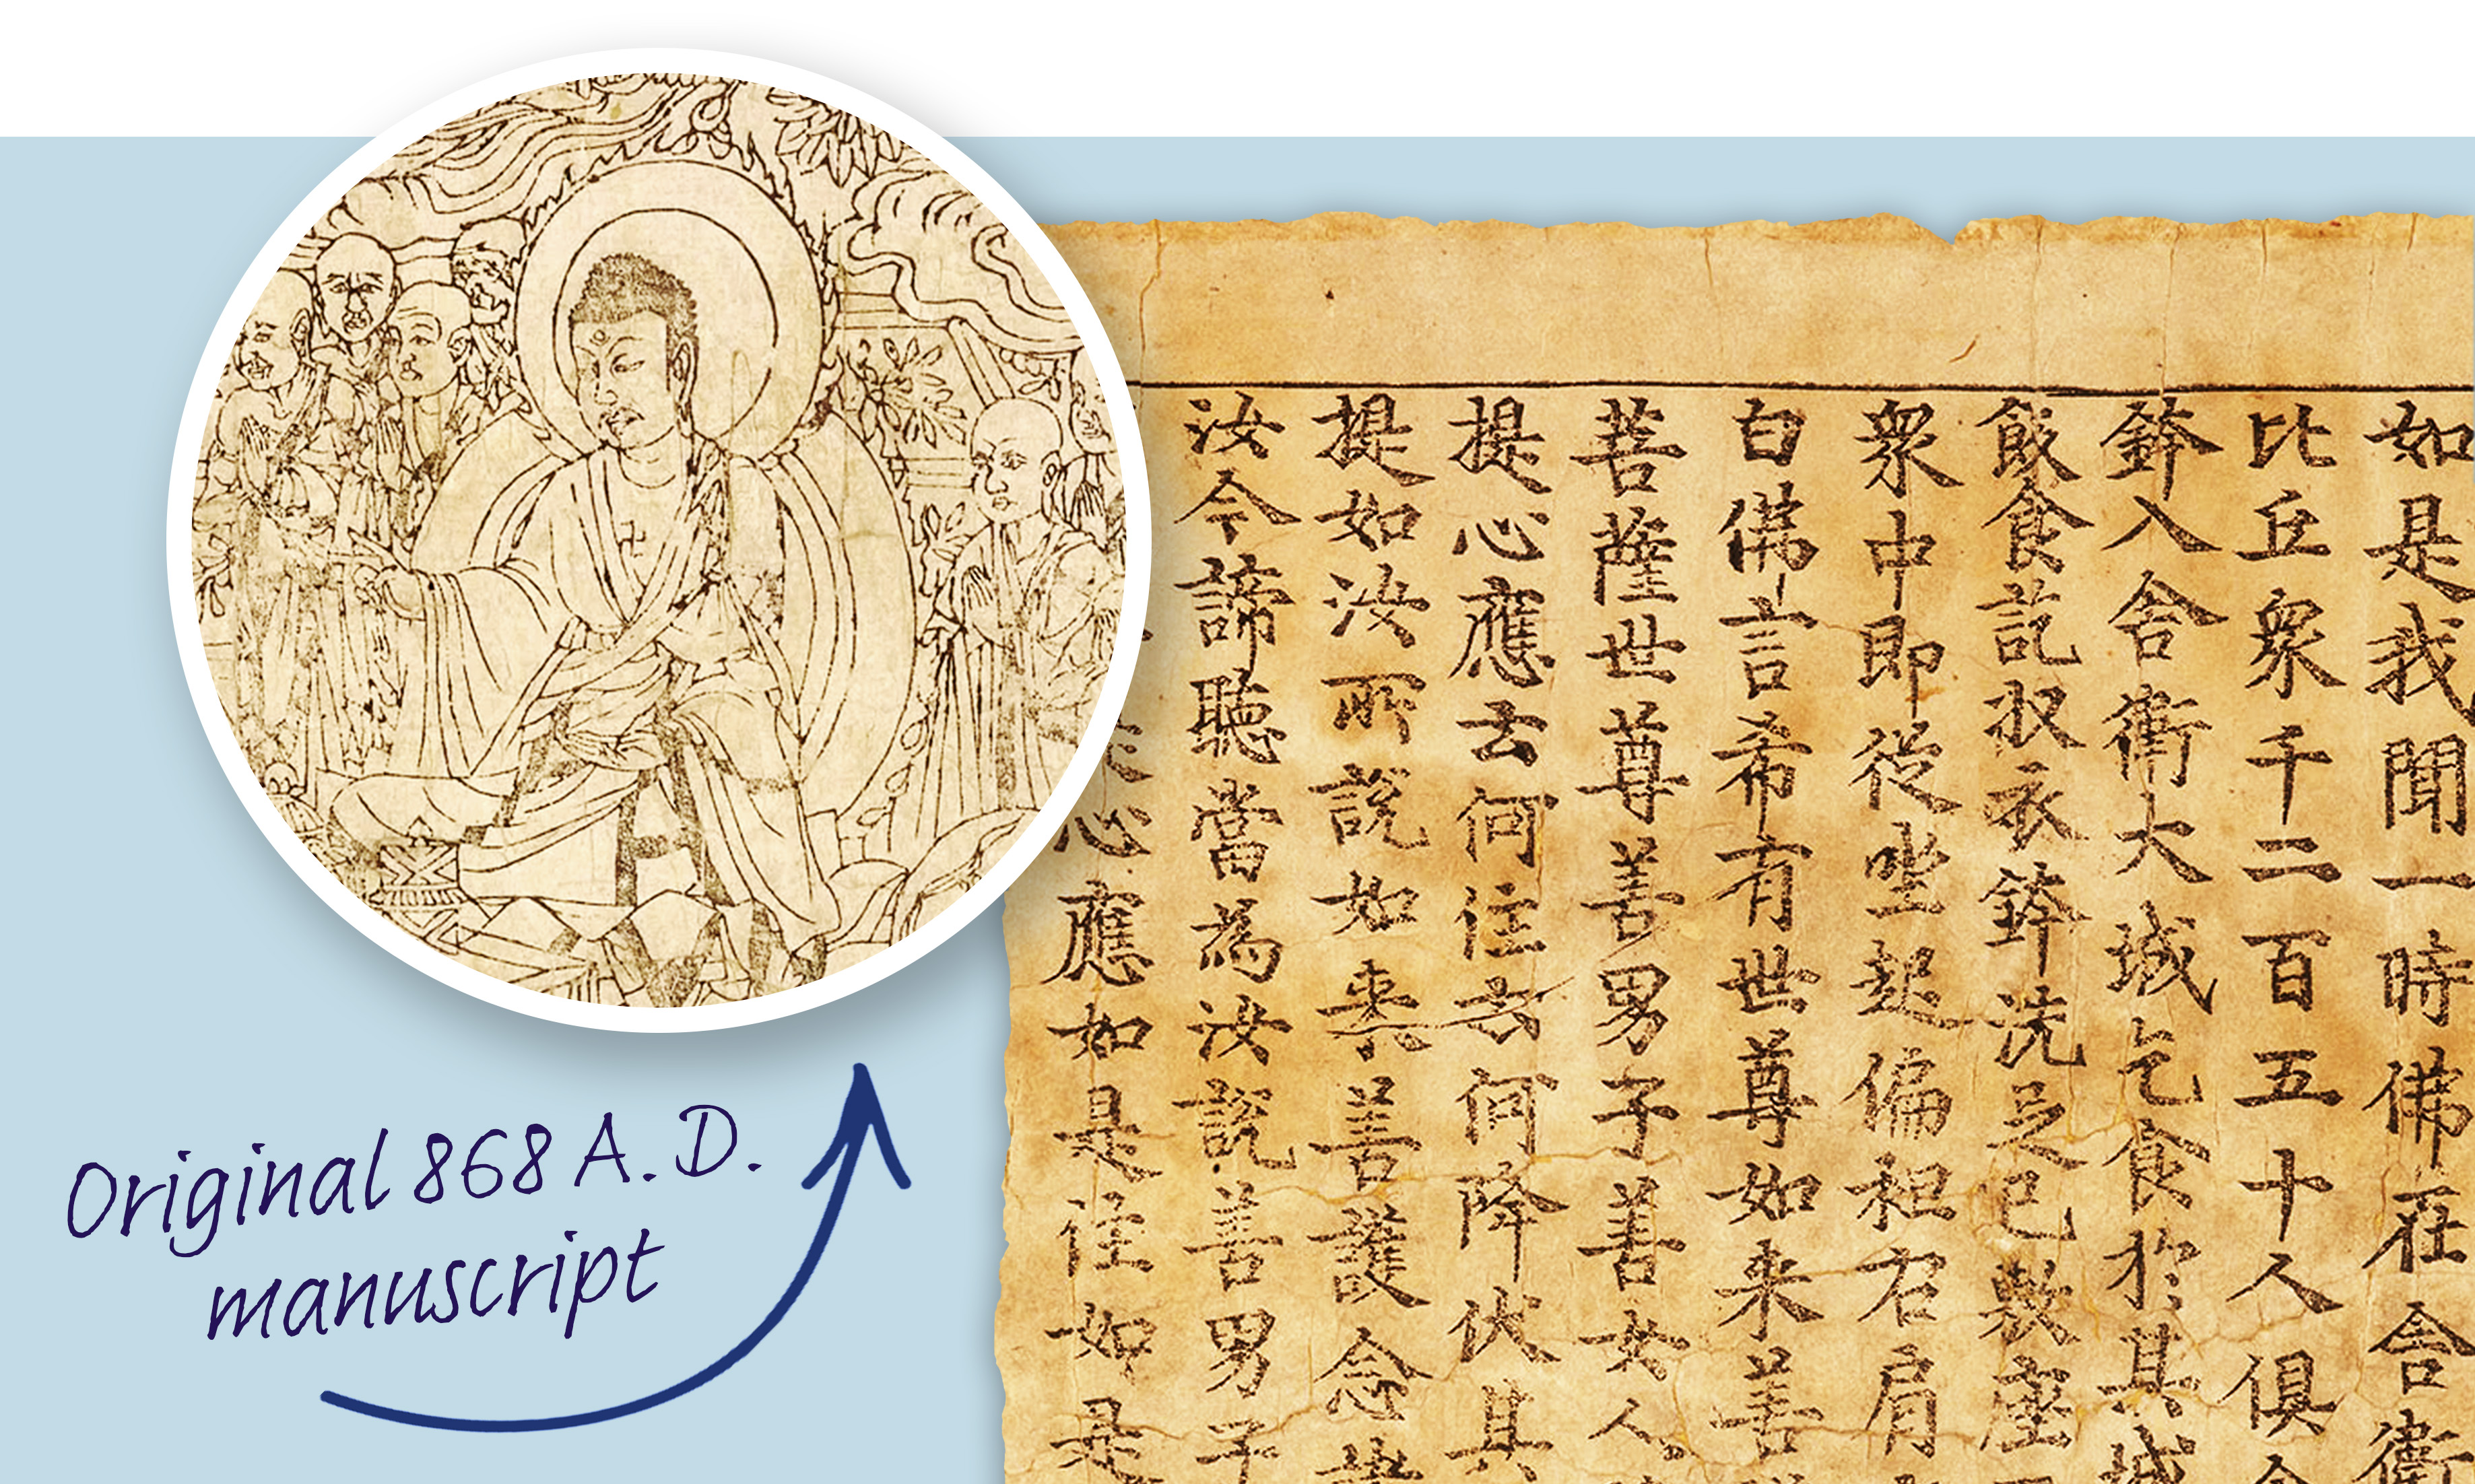 Original 868 A.D.
manuscript
如是我聞一時佛在舍衛
比丘衆千二百五十人俱
鉢入舍衛大城乞食於其城
飯食訖収衣鉢洗足已敷座
衆中即從坐起偏袒右肩
白佛言希有世尊如来善
菩薩世尊善男子善女人
提心應云何住云何降伏其
提如汝所說如来善護念
汝今諦聽當為汝說善男子
心應如是住如是